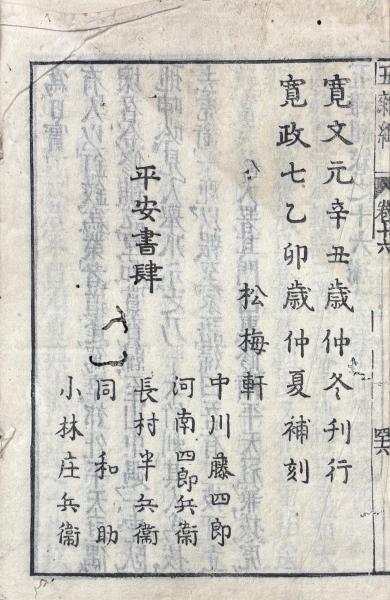 五雜組 卷十六
寛文元辛丑歳仲冬刊行
寛政七乙卯歳仲夏補刻
松梅軒
中川藤四郎
河南四郎兵衞
平安書肆
長村半兵衞
同和助
小林庄兵衞